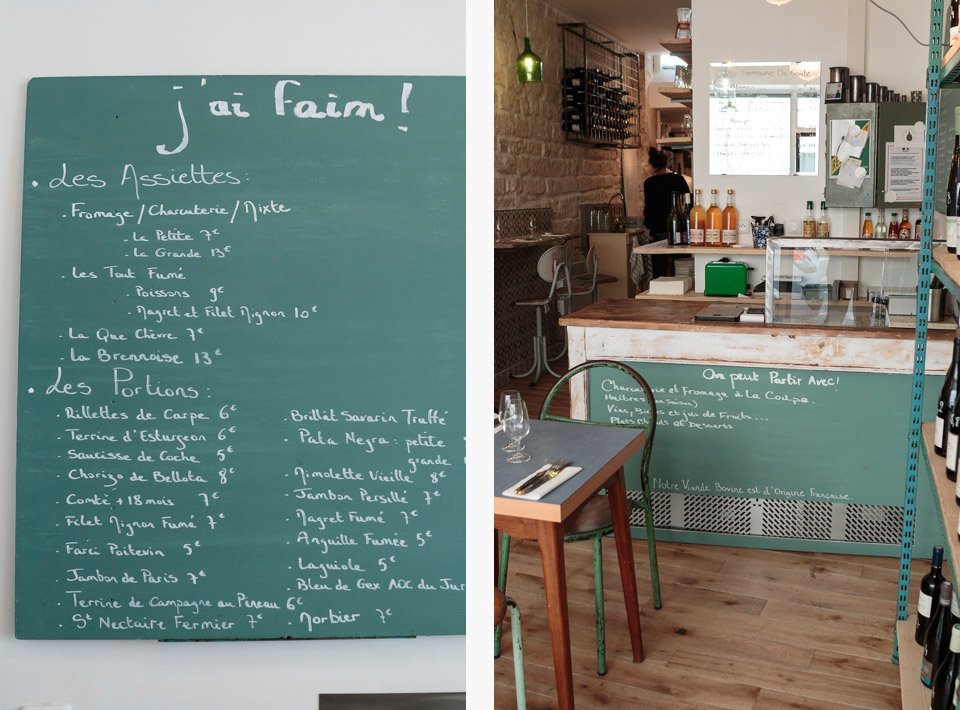 j'ai faim !
. Les Assiettes :
. Fromage / Charcuterie / Mixte
. La Petite 7€
. La Grande 13€
. Les Tout Fumé
. Poissons 9€
. Magret et Filet Mignon 10€
. La Que Chèvre 7€
. La Brennoise 13€
. Les Portions :
. Rillettes de Carpe 6€
. Terrine d'Esturgeon 6€
. Saucisse de Coche 5€
. Chorizo de Bellota 8€
. Comté +18 mois 7€
. Filet Mignon Fumé 7€
. Farci Poitevin 5€
. Jambon de Paris 7€
. Terrine de Campagne au Pineau 6€
. St Nectaire Fermier 7€
. Brillat Savarin Truffé
. Pata Negra : petite
grande
. Mimolette Vieille 8€
. Jambon Persillé 7€
. Magret Fumé 7€
. Anguille Fumée 5€
. Laguiole 5€
. Bleu de Gex AOC du Jur
. Morbier 7€
Semaine On Goûte
On peut Partir Avec!
Charcuterie et Fromage à la Coupe.
Huîtres (en Saison)
Vins, Bières et jus de Fruits....
Plats Chauds et Desserts
Notre Viande Bovine est d'Origine Française.